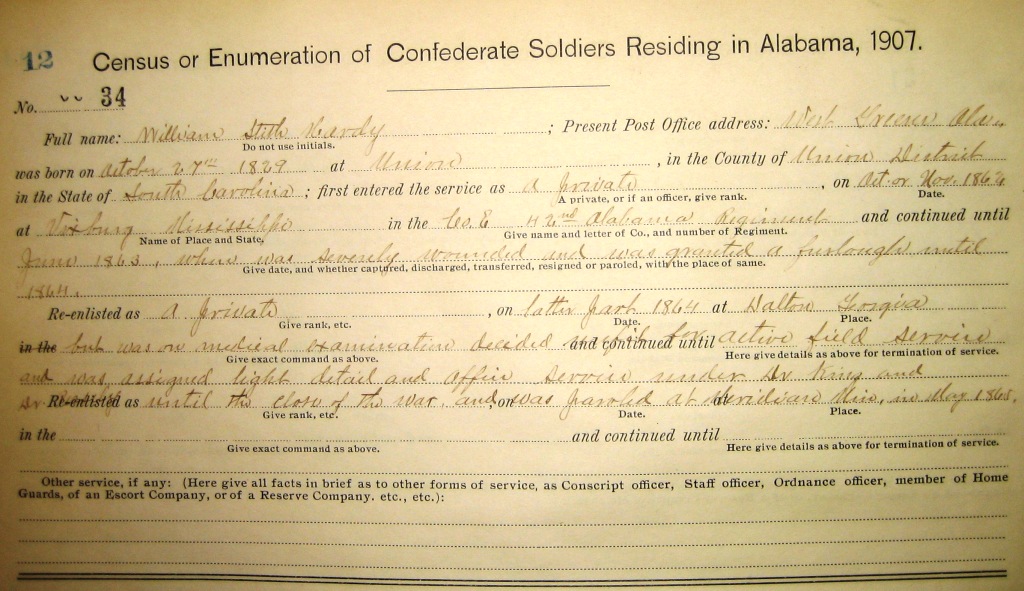 12 Census or Enumeration of Confederate Soldiers Residing in Alabama, 1907.
No. 34
Full name: William Stith Hardy ; Present Post Office address: West Greene Ala.
Do not use initials.
was born on October 27th 1829 at Union , in the County of Union District
in the State of South Carolina ; first entered the service as A private , on Oct or Nov. 1862
A private, or if an officer, give rank. Date.
at Vixburg Mississippi in the Co. E 42nd Alabama Regiment and continued until
Name of Place and State, Give name and letter of Co., and number of Regiment.
June 1863, when was severely wounded and was granted a furlough until
Give date, and whether captured, discharged, transferred, resigned or paroled, with the place of same.
1864.
Re-enlisted as A private , on latter part 1864 at Dalton Georgia
Give rank, etc. Date. Place.
in the but was on medical examination decided and continued until active field service
Give exact command as above. Here give details as above for termination of service.
and was assigned light detail and office service under Dr King and
Dr Re-enlisted as until the close of the war, and , on was paroled at Meridian Miss, in May 1865.
Give rank, etc. Date. Place.
in the and continued until
Give exact command as above. Here give details as above for termination of service.
Other service, if any: (Here give all facts in brief as to other forms of service, as Conscript officer, Staff officer, Ordnance officer, member of Home
Guards, of an Escort Company, or of a Reserve Company. etc., etc.):